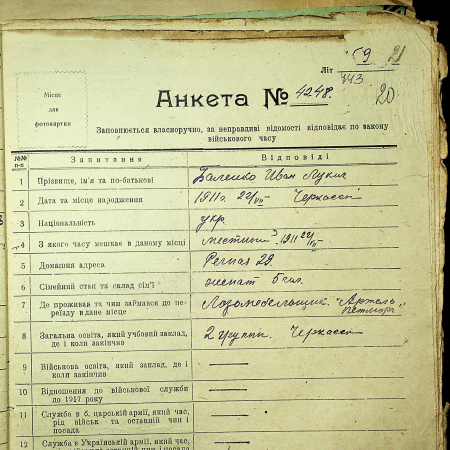 59 21
Літ
443
20
Місце
для
фотокартки
Анкета № 4248.
Заповнюється власноручно, за неправдиві відомості відповідає по закону
військового часу
№№ п-п Запитання Відповіді
1 Прізвище, ім'я та по-батькові Иван Лукич
2 Дата та місце народження 1911 г. 22/VII Черкассы
3 Національність укр.
4 З якого часу мешкає в даному місці местный 1911 22/VII
5 Домашня адреса 29.
6 Сімейний стан та склад сім'ї женат
7 Де проживав та чим займався до пе-
реїзду в дане місце "Артель
8 Загальна освіта, який учбовий заклад,
де і коли закінчив 2 группы. Черкассы
9 Військова освіта, який заклад, де і
коли закінчив —
10 Відношення до військової служби
до 1917 року —
11 Служба в б. царській армії, який час,
рід військ та останній чин і
посада —
12 Служба в Українській армії, який час, —